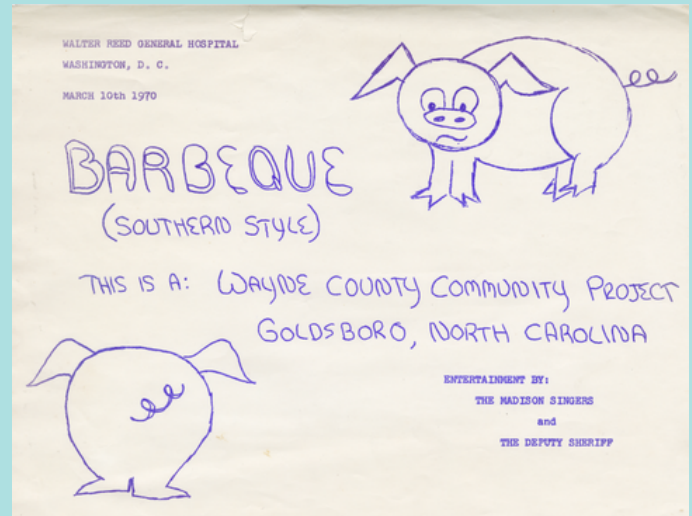 WALTER REED GENERAL HOSPITAL
WASHINGTON, D. C.
MARCH 10th 1970
BARBEQUE
(SOUTHERN STYLE)
THIS IS A: WAYNE COUNTY COMMUNITY PROJECT
GOLDSBORO, NORTH CAROLINA
ENTERTAINMENT BY:
THE MADISON SINGERS
and
THE DEPUTY SHERIFF